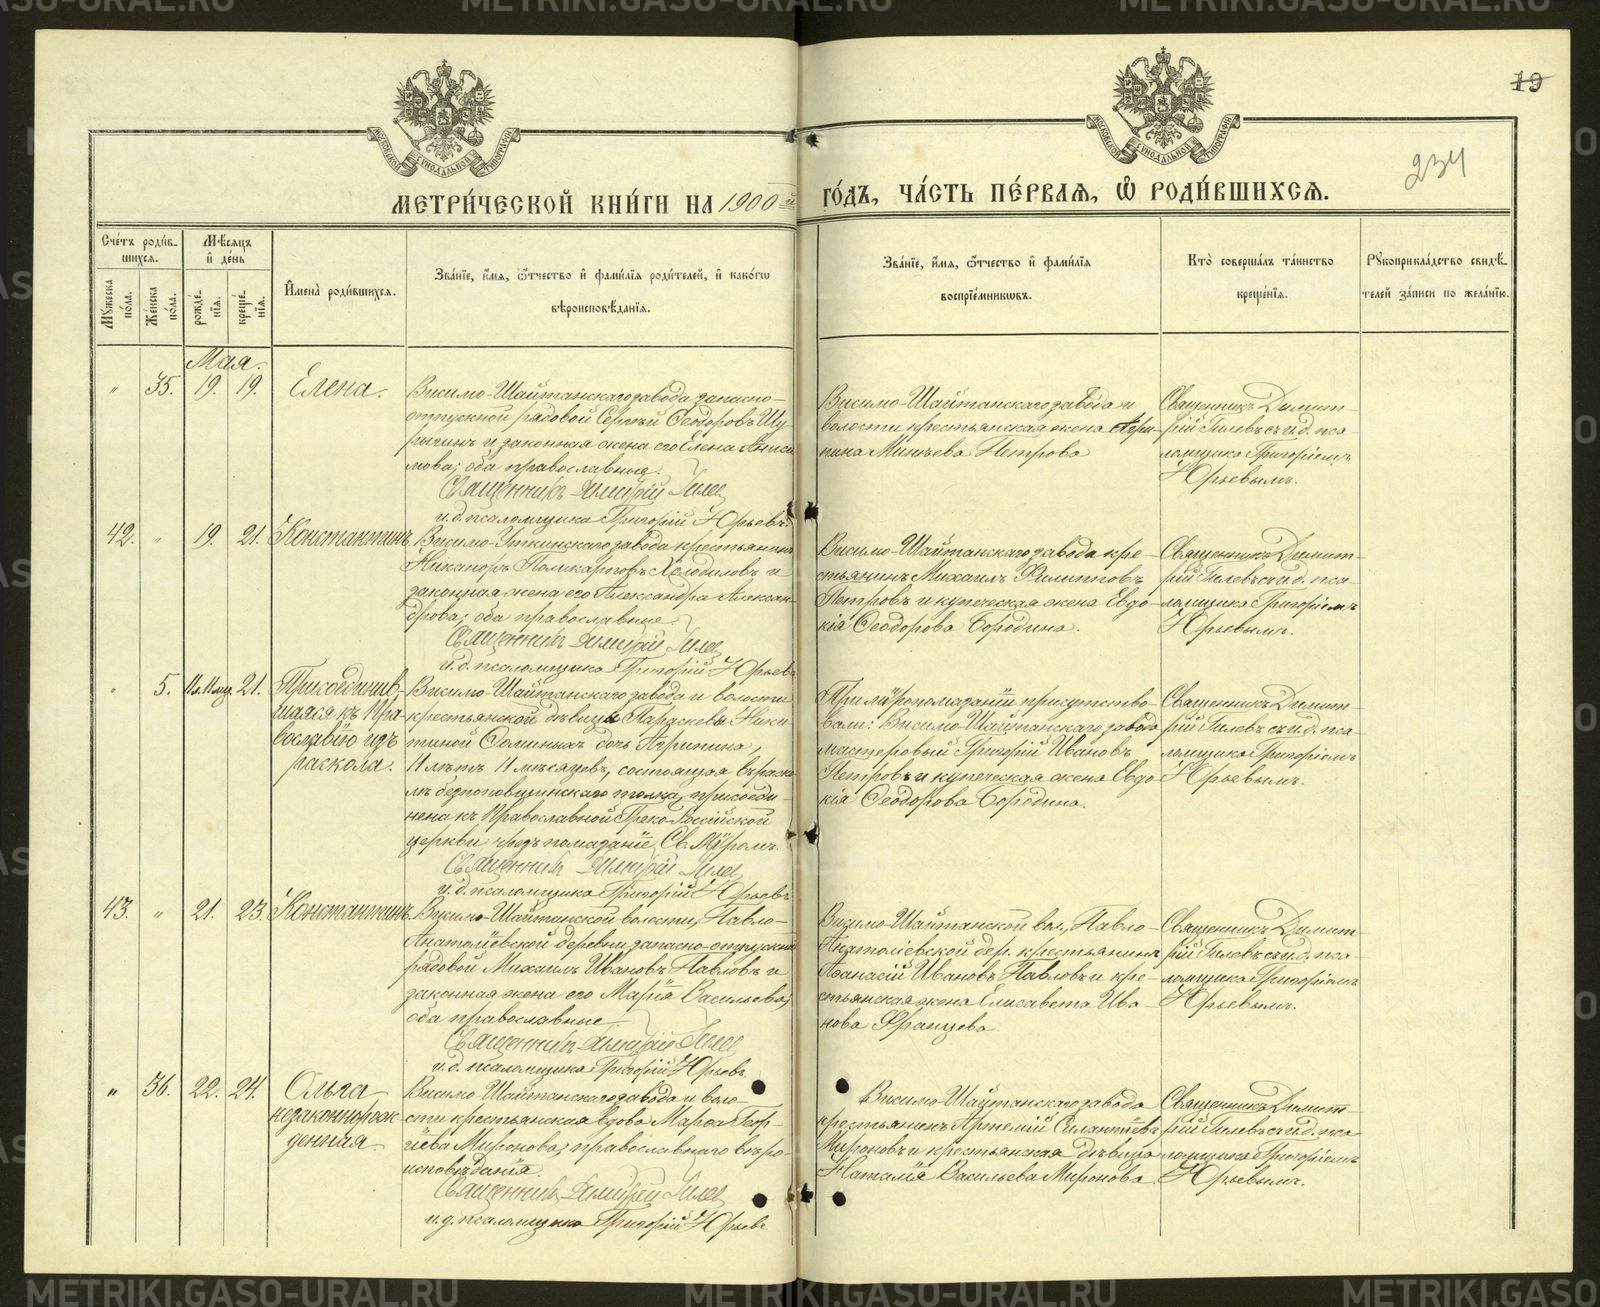 METRIKI.GASO-URAL.RU
19
234
МОСКОВСКОЙ СѴНОДАЛЬНОЙ ТИПОГРАФІИ
МОСКОВСКОЙ СѴНОДАЛЬНОЙ ТИПОГРАФІИ
МЕТРИ́ЧЕСКОЙ КНИ́ГИ НА 1900 й ГО́ДЪ, ЧА́СТЬ ПЕ́РВАЯ, Ѽ РОДИ́ВШИХСЯ.
Сче́тъ роди́в-
шихся.
Мѣ́сяцъ
и҆ де́нь
Мꙋ́жеска
по́ла.
Же́нска
по́ла.
рожде́-
нїѧ.
креще́-
нїѧ.
И҆мена̀ роди́вшихсѧ.
Зва́нїе, и҆́мѧ, ѻ҆́тчество и҆ фами́лїѧ роди́телей, и҆ како́гѡ
вѣроисповѣ́данїѧ.
Зва́нїе, и҆́мѧ, ѻ҆́тчество и҆ фами́лїѧ
воспрїе́мникѡвъ.
Кто̀ соверша́лъ та́инство
креще́нїѧ.
Рꙋкоприкла́дство свидѣ́-
телей за́писи по жела́нїю.
Мая.
" 35. 19. 19. Елена.
Висимо-Шайтанскаго завода запасно-
отпускной рядовой Сергѣй Ѳеодоровъ Шу
рыгинъ и законная жена его Елена Аниси
мова; оба православные.
Священникъ Димитрій Гилев
и. д. псаломщика Григорій Юрьевъ.
Висимо-Шайтанскаго завода и
волости крестьянская жена Агри-
пина Минѣева Петрова
Священникъ Димит-
рій Гилевъ съ и. д. пса-
ломщика Григоріемъ
Юрьевымъ.
42. " 19. 21. Константинъ.
Висимо-Уткинскаго завода крестьянинъ
Никаноръ Поликарповъ Холодиловъ и
законная жена его Александра Алексан-
дрова; оба православные.
Священникъ Димитрій Гилев
и. д. псаломщика Григорій Юрьевъ
Висимо-Шайтанскаго завода кре-
стьянинъ Михаилъ Филипповъ
Петровъ и купеческая жена Евдо-
кія Ѳеодорова Бородина.
Священникъ Димит-
рій Гилевъ съ и. д. пса-
ломщика Григоріемъ
Юрьевымъ.
" 5. 11 л. 11 мц. 21. Присоединив-
шаяся къ Пра-
вославію изъ
раскола.
Висимо-Шайтанскаго завода и волости
крестьянской дѣвицы Параскевы Ники-
тиной Ѳоминыхъ дочь Агрипина,
11 лѣтъ 11 мѣсяцевъ, состоящая въ раско
лѣ безпоповщинскаго толка, присоеди-
нена къ Православной Греко-Россійской
церкви чрезъ помазаніе Св. Мѵромъ.
Священникъ Димитрій Гилев
и. д. псаломщика Григорій Юрьевъ
При мѵропомазаніи присутство-
вали: Висимо-Шайтанскаго завода
мастеровый Григорій Ивановъ
Петровъ и купеческая жена Евдо-
кія Ѳеодорова Бородина.
Священникъ Димит-
рій Гилевъ съ и. д. пса-
ломщика Григоріемъ
Юрьевымъ.
43. " 21. 23. Константинъ.
Висимо-Шайтанской волости, Павло-
Анатоліевской деревни запасно-отпускной
рядовой Михаилъ Ивановъ Павловъ и
законная жена его Марія Васильева;
оба православные.
Священникъ Димитрій Гилев
и. д. псаломщика Григорій Юрьевъ.
Висимо-Шайтанской вол., Павло-
Анатоліевской дер. крестьянинъ
Аѳанасій Ивановъ Павловъ и кре-
стьянская жена Елисавета Ива-
нова Францева.
Священникъ Димит-
рій Гилевъ съ и. д. пса-
ломщика Григоріемъ
Юрьевымъ.
" 36. 22. 24. Ольга
незаконнорож-
денная.
Висимо-Шайтанскаго завода и воло-
сти крестьянская вдова Марѳа Геор-
гіева Миронова; православнаго вѣро-
исповѣданія.
Священникъ Димитрій Гилев
и. д. псаломщика Григорій Юрьевъ
Висимо-Шайтанскаго завода
крестьянинъ Артемій Силантіевъ
Мироновъ и крестьянская дѣвица
Наталія Васильева Миронова.
Священникъ Димит-
рій Гилевъ съ и. д. пса
ломщика Григоріемъ
Юрьевымъ.
METRIKI.GASO-URAL.RU